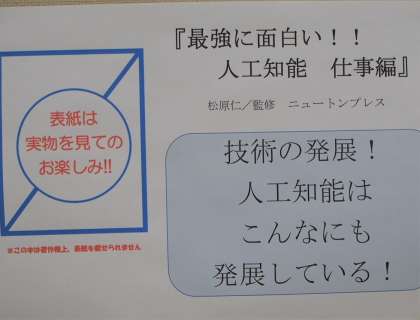 『最強に面白い！！
人工知能　仕事編』
松原仁／監修　ニュートンプレス
表紙は
実物を見ての
お楽しみ!!
※この本は著作権上、表紙を載せられません
技術の発展！
人工知能は
こんなにも
発展している！